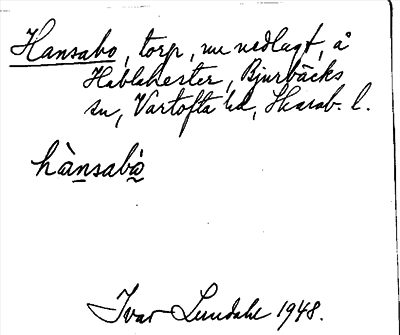 Hansabo, torp, nu nedlagt, å
Hablahester, Bjurbäcks
sn, Vartofta hd, Skarab. l.
hànsabò̤
Ivar Lundahl 1948.